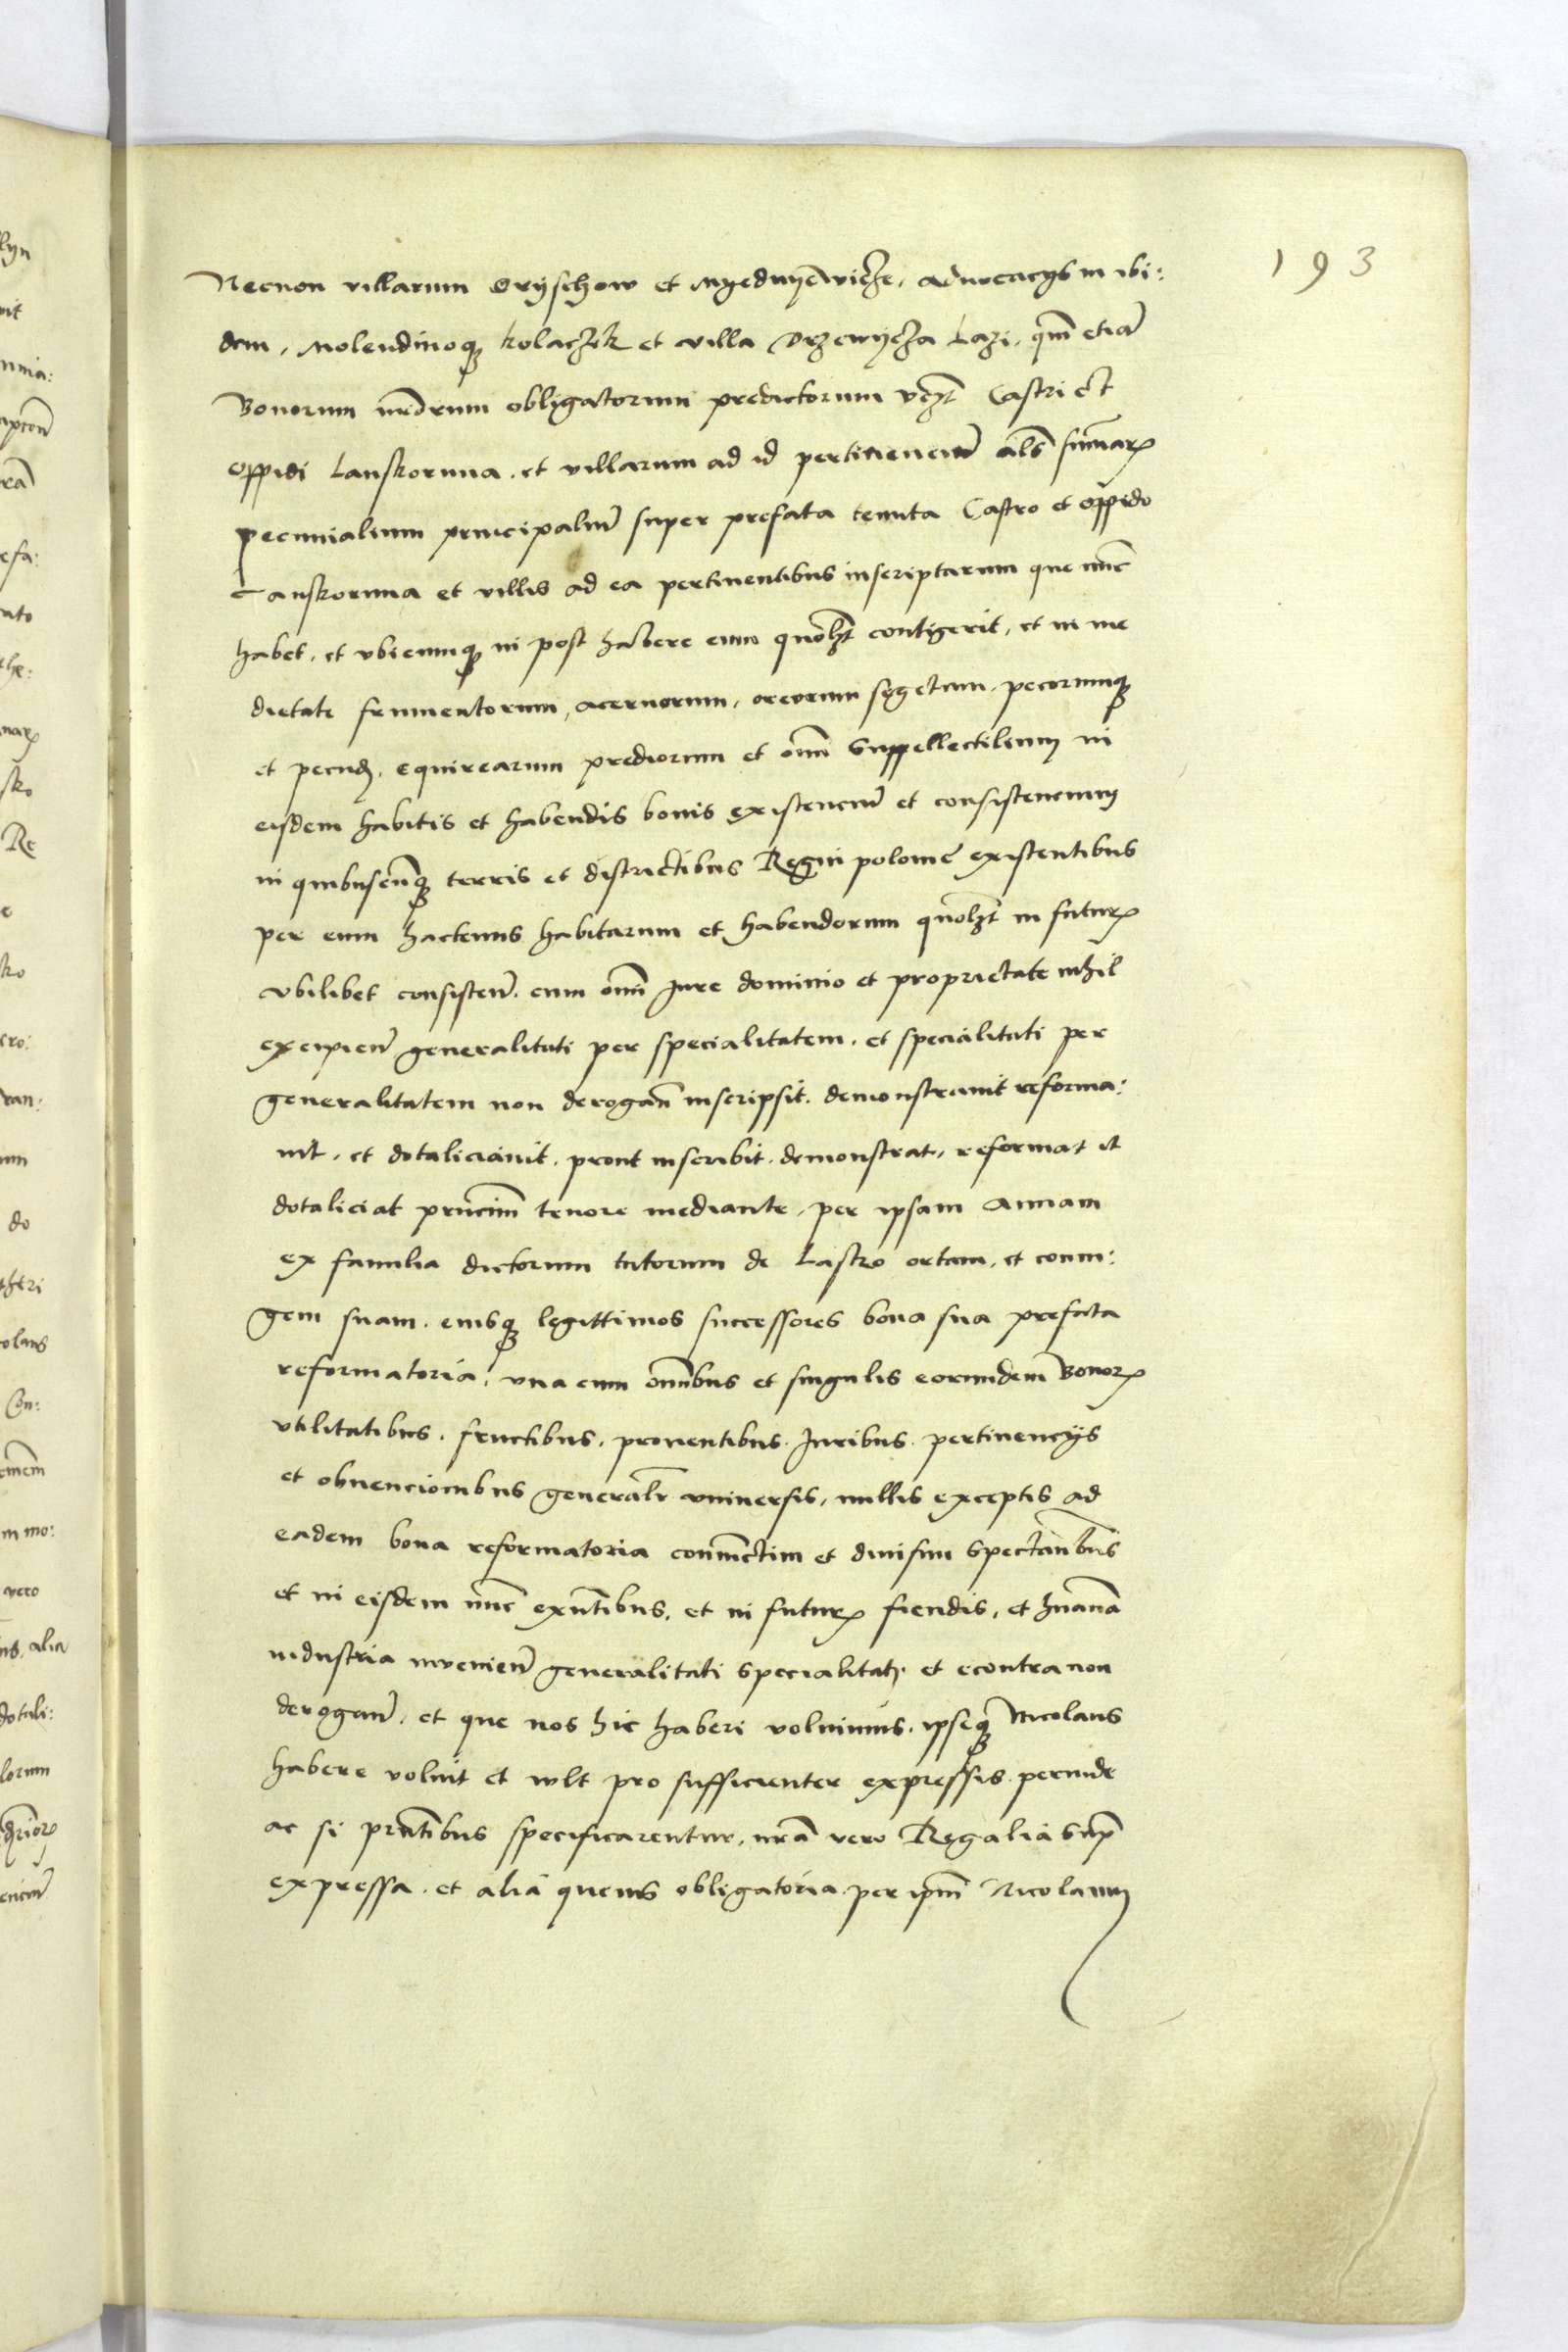 193
Necnon villarum Oryschow et Nyedzwyedzicze, aduocacys in ibi:
dem, Molendinoq; kolaczek et villa Drzewycza Lazi, qm̄ etiā
Bonorum nr̄orum obligatorum predictorum vz̄t Castri et
oppidi Lanskorunna. et villarum ad id pertinenciū als̄ sum̄arꝝ
pecunialium principaliū super prefata tenuta Castro et oppido
Lanskorunna et villis ad ea pertinentibus inscriptarum que nūc
habet, et vbicumq; in post habere eum quolz̄t contigerit, et in me
dietate frumentorum, aceruorum, orreorum segetum. pecorumq;
et pecud, equirearum prediorum et om̄i suppellectilium in
eisdem habitis et habendis bonis existenciū et consistencium
in quibuscūq; terris et districtibus Regni polonie existentibus
per eum hactenus habitarum et habendorum quolz̄t in futurꝝ
vbilibet consisteñ. cum om̄i Jure dominio et proprietate nihil
excipieñ generalitati per specialitatem. et specialitati per
generalitatem non derogañ inscripsit. demonstrauit reforma:
uit, et dotaliciauit. prout inscribit. demonstrat, reformat et
dotaliciat pn̄cium tenore mediante, per ipsam Annam
ex familia dictorum tutorum de Lasko ortam, et coniu:
gem suam. eiusq; legittimos successores bona sua prefata
reformatoria, vna cum om̄ibus et singulis eorundem Bonorꝝ
vtilitatibus. fructibus. prouentibus. Juribus. pertinencys
et obuencionibus generalr̄ vniuersis, nullis exceptis ad
eadem bona reformatoria coniūctim et diuisim spectan̄bus
et in eisdem nūc exn̄tibus, et in futurꝝ fiendis, et hūana
industria inuenieñ generalitati specialitati. et econtra non
derogañ, et que nos hic haberi voluimus. ipseq; Nicolaus
habere voluit et wlt pro sufficienter expressis. perinde
ac si prn̄tibus specificarentur, nrā vero Regalia sup̄
expressa. et alia queuis obligatoria per ipm̄ Nicolaum